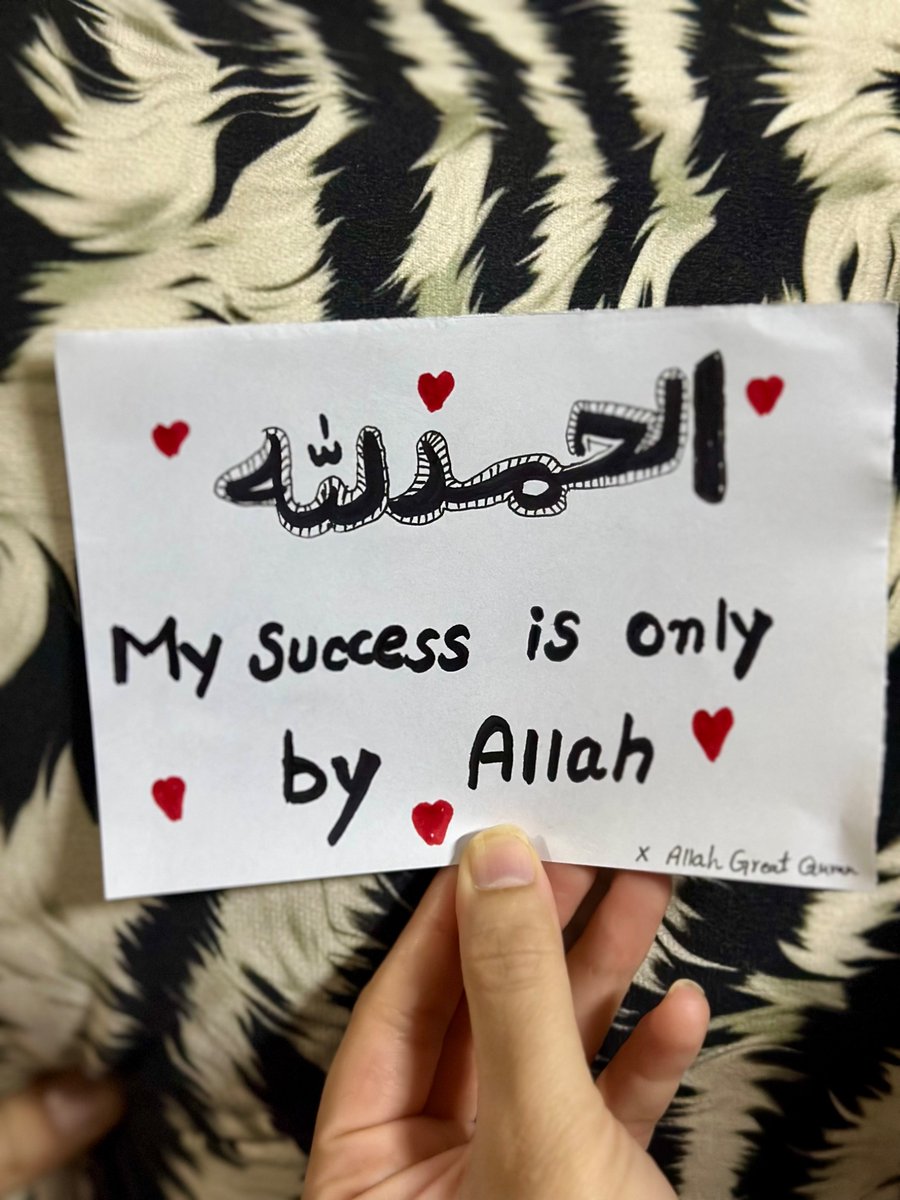 الحمدلله
My success is only
by Allah
x Allah Great Quran